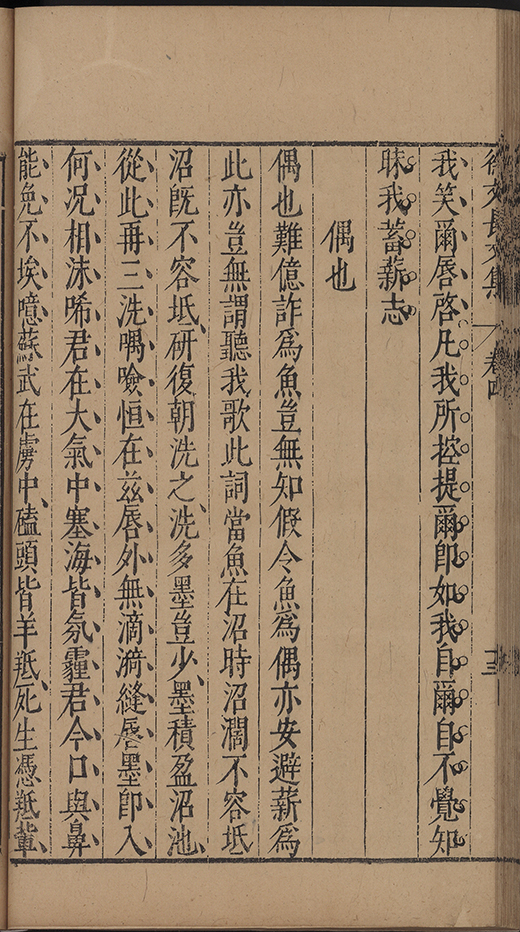 徐文長文集 卷四 十三
我笑爾唇啓凡我所控提爾即如我自爾自不覺知
昧我蓄薪志
偶也
偶也難億詐為魚豈無知假令魚為偶亦安避薪為
此亦豈無謂聽我歌此詞當魚在沼時沼濶不容坻
沼旣不容坻研復朝洗之洗多墨豈少墨積盈沼池
從此再三洗喁噞恒在兹唇外無滴漪縫唇墨即入
何况相沫唏君在大氣中塞海皆氛霾君今口與鼻
能免不埃噫蘇武在虜中磕頭皆羊羝死生憑羝輩